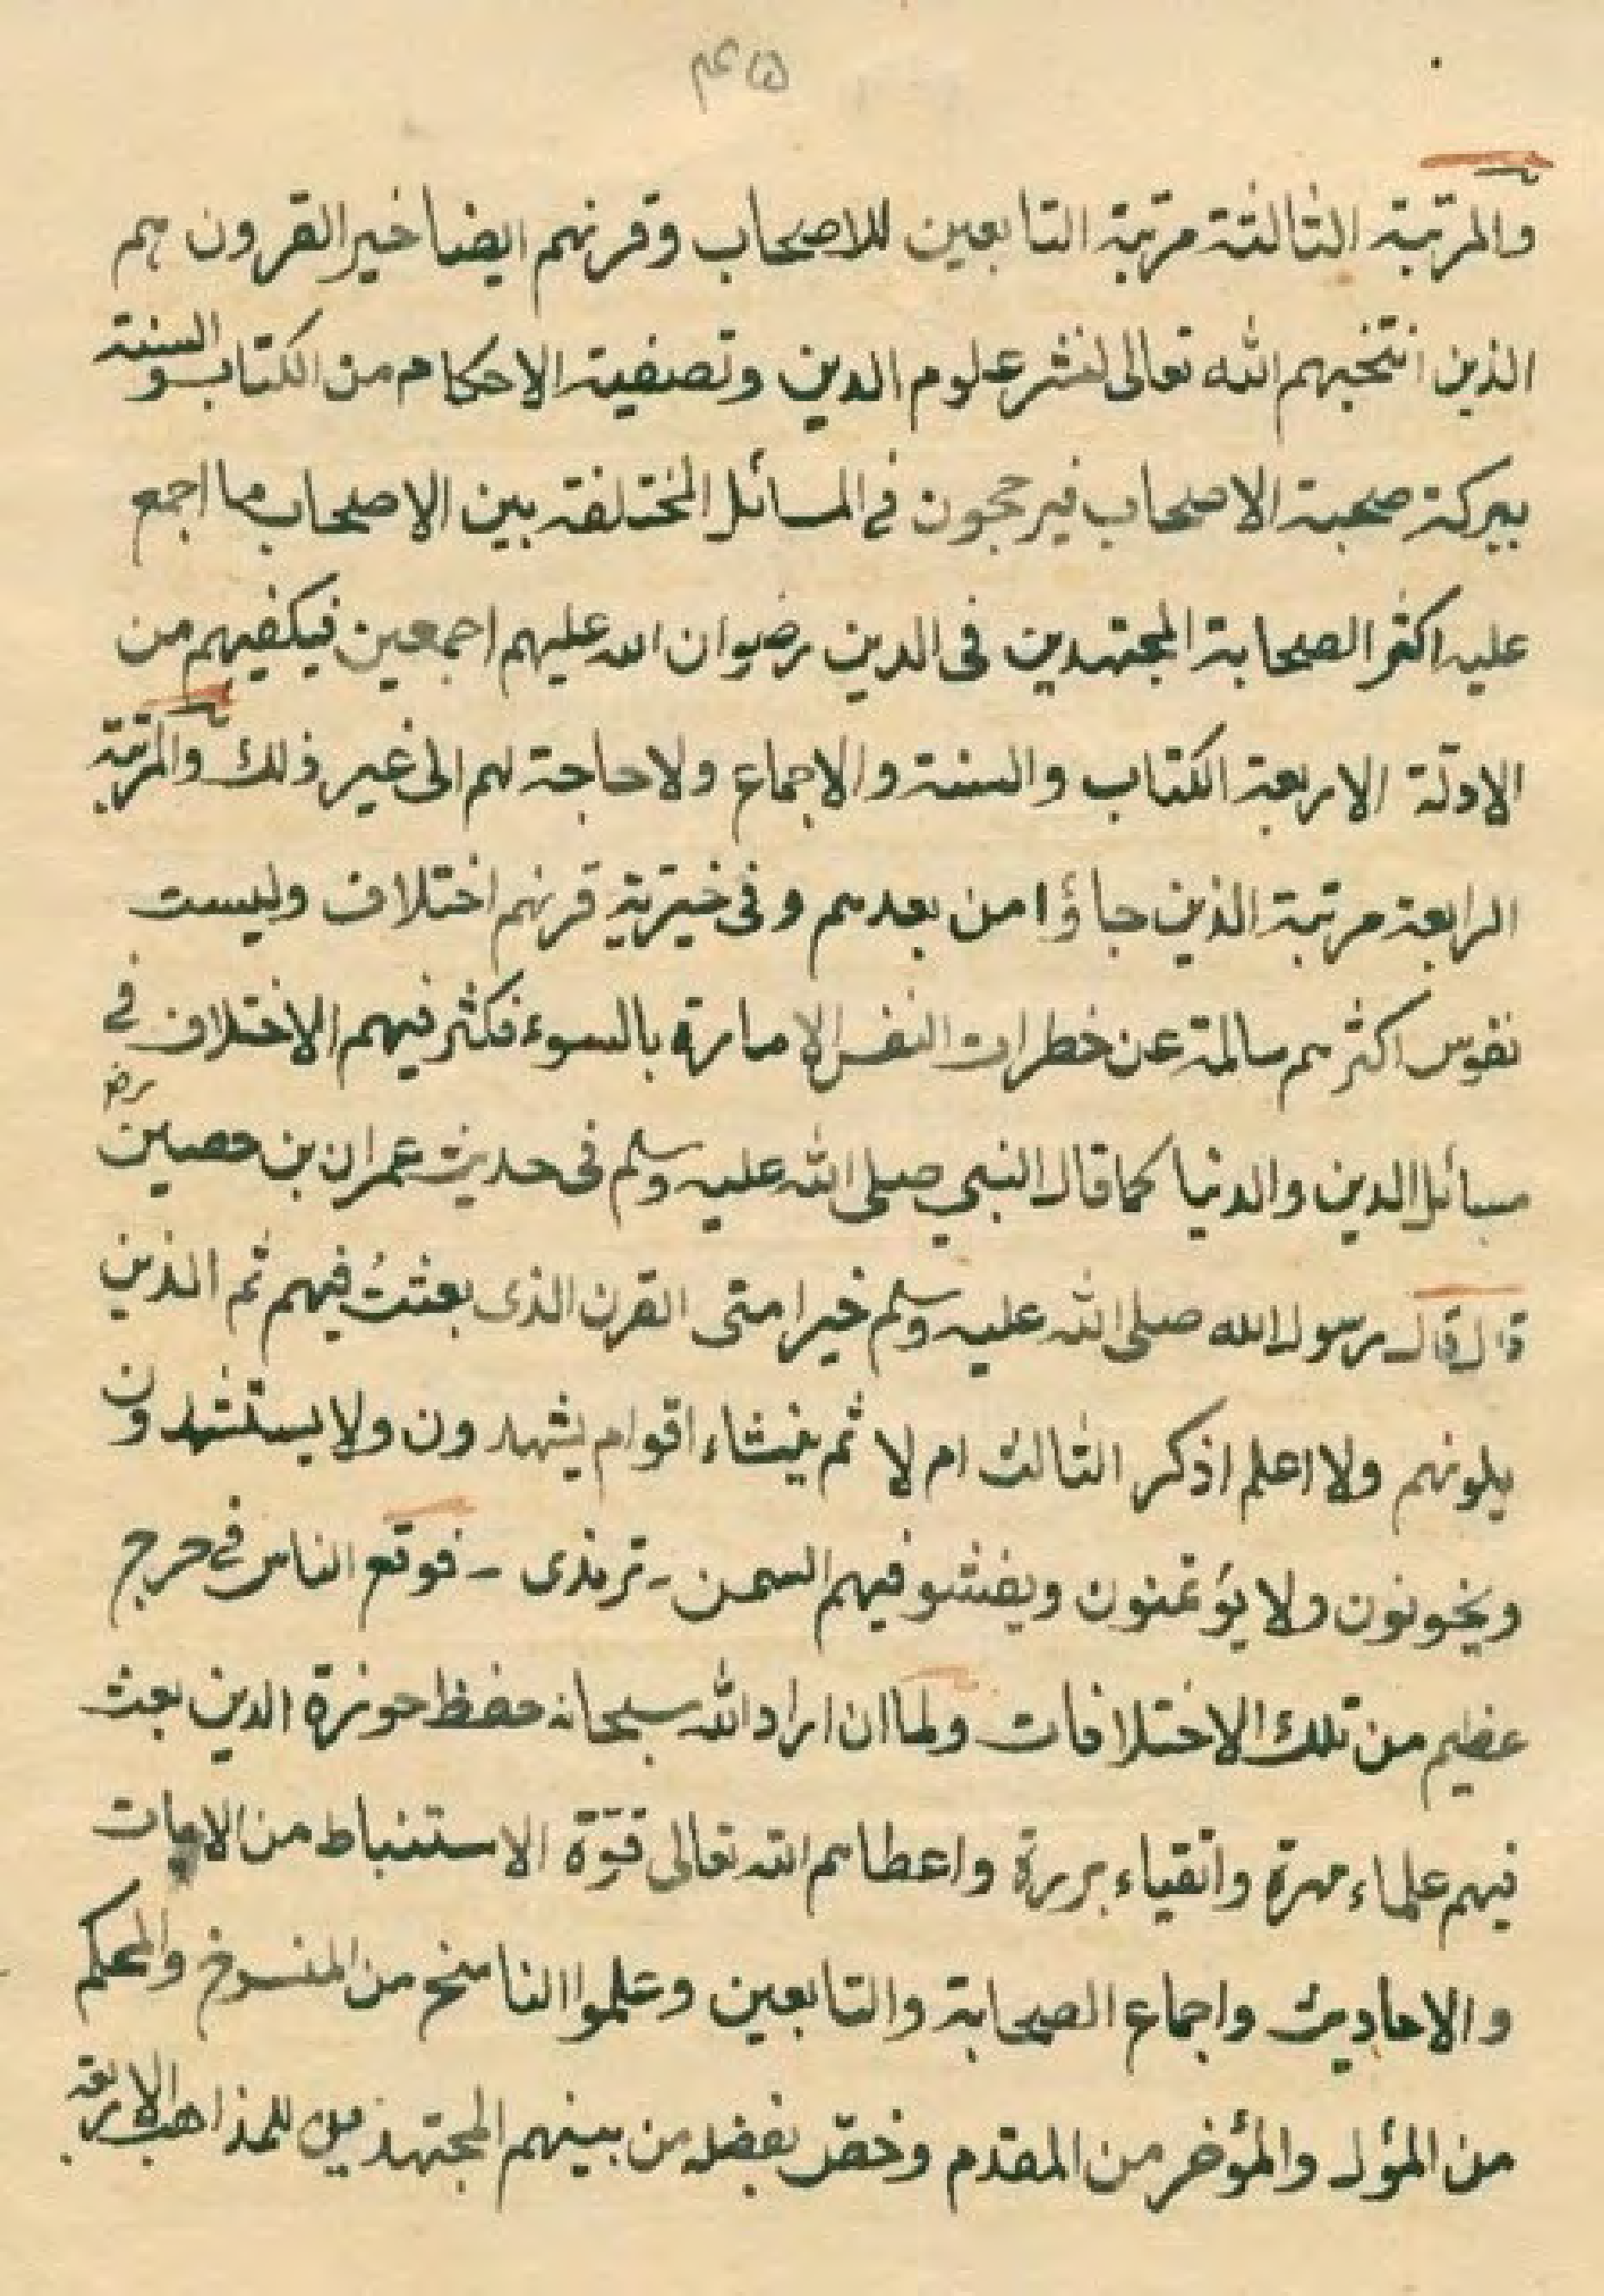 ۴۶۵
والمرتبة الثالثة مرتبة التابعين للاصحاب وقرنهم ايضا خير القرون هم
الذين انتخبهم الله تعالى لنشر علوم الدين وتصفية الاحكام من الكتاب والسنة
ببركة صحبة الاصحاب فيرجحون فى المسائل المختلفة بين الاصحاب ما اجمع
عليه اكثر الصحابة المجتهدين فى الدين رضوان الله عليهم اجمعين فيكفيهم من
الادلّة الاربعة الكتاب والسنة والاجماع ولا حاجة لهم الى غير ذلك والمرتبة
الرابعة مرتبة الذين جاؤا من بعدهم وفى خيرية قرنهم اختلاف وليست
نفوس اكثرهم سالمة عن خطرات النفس الامارة بالسوء فكثر فيهم الاختلاف فى
مسائل الدين والدنيا كما قال النبي صلى الله عليه وسلم فى حديث عمران بن حصين رض
قال قال رسول الله صلى الله عليه وسلم خير امتى القرن الذى بعثتُ فيهم ثم الذين
يلونهم ولا اعلم اذكر الثالث ام لا ثم ينشاء اقوام يشهدون ولا يستشهدون
ويخونون ولا يؤتمنون ويفشو فيهم السمن - ترمذى - فوقع الناس فى حرج
عظيم من تلك الاختلافات ولما ان اراد الله سبحانه حفظ حوزة الدين بعث
فيهم علماء مهرة واتقياء بررة واعطاهم الله تعالى قوّة الاستنباط من الايات
والاحاديث واجماع الصحابة والتابعين وعلموا الناسخ من المنسوخ والمحكم
من المؤل والمؤخر من المقدم وخصّ بفضله من بينهم المجتهدين للمذاهب الاربعة